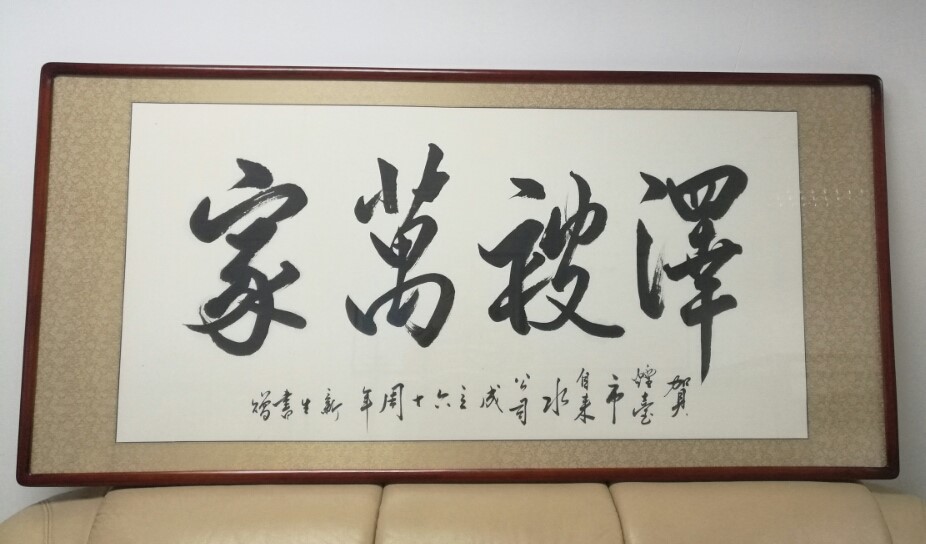 澤被萬家
賀煙臺市自来水公司成立六十周年 新生書贈